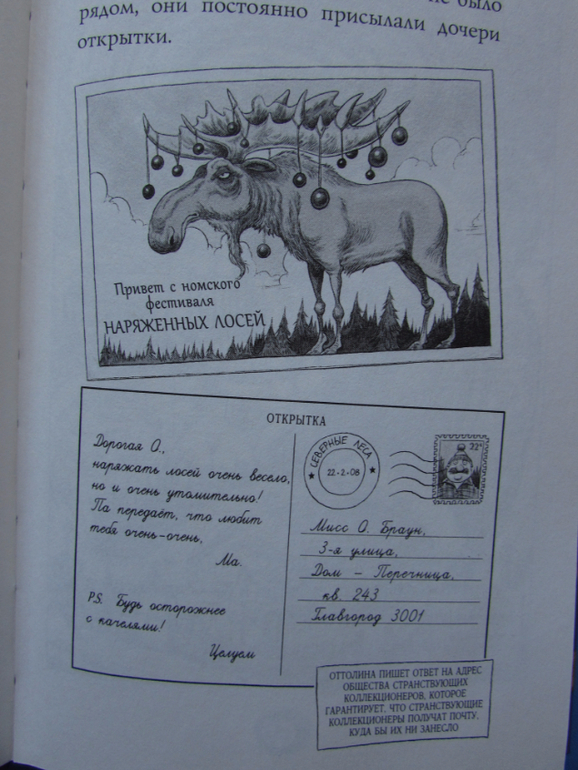 не было
рядом, они постоянно присылали дочери
открытки.
Привет с номского
фестиваля
НАРЯЖЕННЫХ ЛОСЕЙ
ОТКРЫТКА
Дорогая О.,
наряжать лосей очень весело,
но и очень утомительно!
Па передаёт, что любит
тебя очень-очень,
Ма.
P.S. Будь осторожнее
с качелями!
Целуем
СЕВЕРНЫЕ ЛЕСА
22-2-08
22
Мисс О. Браун,
3-я улица,
Дом – Перечница,
кв. 243
Главгород 3001
ОТТОЛИНА ПИШЕТ ОТВЕТ НА АДРЕС
ОБЩЕСТВА СТРАНСТВУЮЩИХ
КОЛЛЕКЦИОНЕРОВ, КОТОРОЕ
ГАРАНТИРУЕТ, ЧТО СТРАНСТВУЮЩИЕ
КОЛЛЕКЦИОНЕРЫ ПОЛУЧАТ ПОЧТУ,
КУДА БЫ ИХ НИ ЗАНЕСЛО